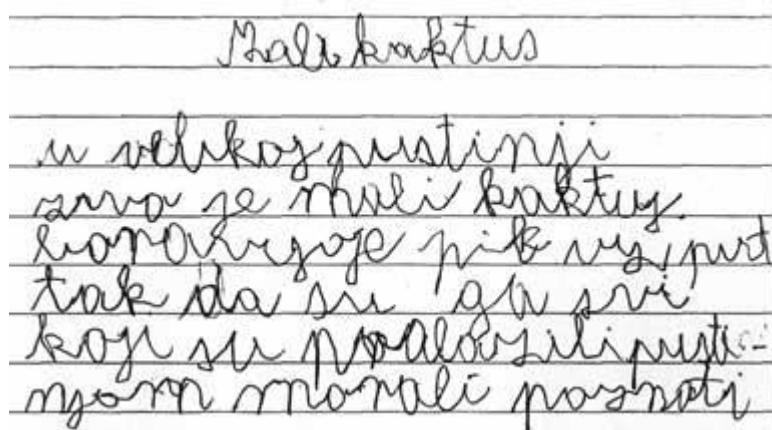 Mali kaktus
u velikoj pustinji
je mali kaktus
pik uz put
tak da su ga svi
koji su prolazili pusti-
njom morali poznati